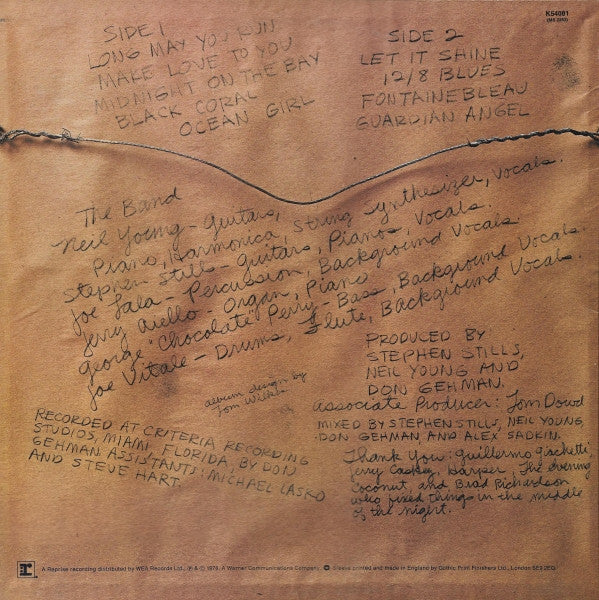 K54081
(MS 2253)
SIDE 1
LONG MAY YOU RUN
MAKE LOVE TO YOU
MIDNIGHT ON THE BAY
BLACK CORAL
OCEAN GIRL
SIDE 2
LET IT SHINE
12/8 BLUES
FONTAINEBLEAU
GUARDIAN ANGEL
The Band
Neil Young - Guitars,
Piano, Harmonica, String Synthesizer, Vocals.
Stephen Stills - Guitars, Piano, Vocals.
Joe Lala - Percussion, Background Vocals.
Jerry Aiello - Organ, Piano
George "Chocolate" Perry - Bass, Background Vocals.
Joe Vitale - Drums, Flute, Background Vocals.
album design by
Tom Wilkes
PRODUCED BY:
STEPHEN STILLS,
NEIL YOUNG AND
DON GEHMAN.
Associate Producer: Tom Dowd
MIXED BY STEPHEN STILLS, NEIL YOUNG,
DON GEHMAN, AND ALEX SADKIN.
RECORDED AT CRITERIA RECORDING
STUDIOS, MIAMI, FLORIDA, BY DON
GEHMAN ASSISTANTS: MICHAEL LASKO
AND STEVE HART.
Thank You: Guillermo Giachetti,
Jerry Caskey, Harper, The evening
Coconut, and Brad Richardson
who fixed things in the middle
of the night.
r
A Reprise recording distributed by WEA Records Ltd., ℗ & © 1976, A Warner Communications Company. Sleeve printed and made in England by Gothic Print Finishers Ltd., London SE9 2EQ